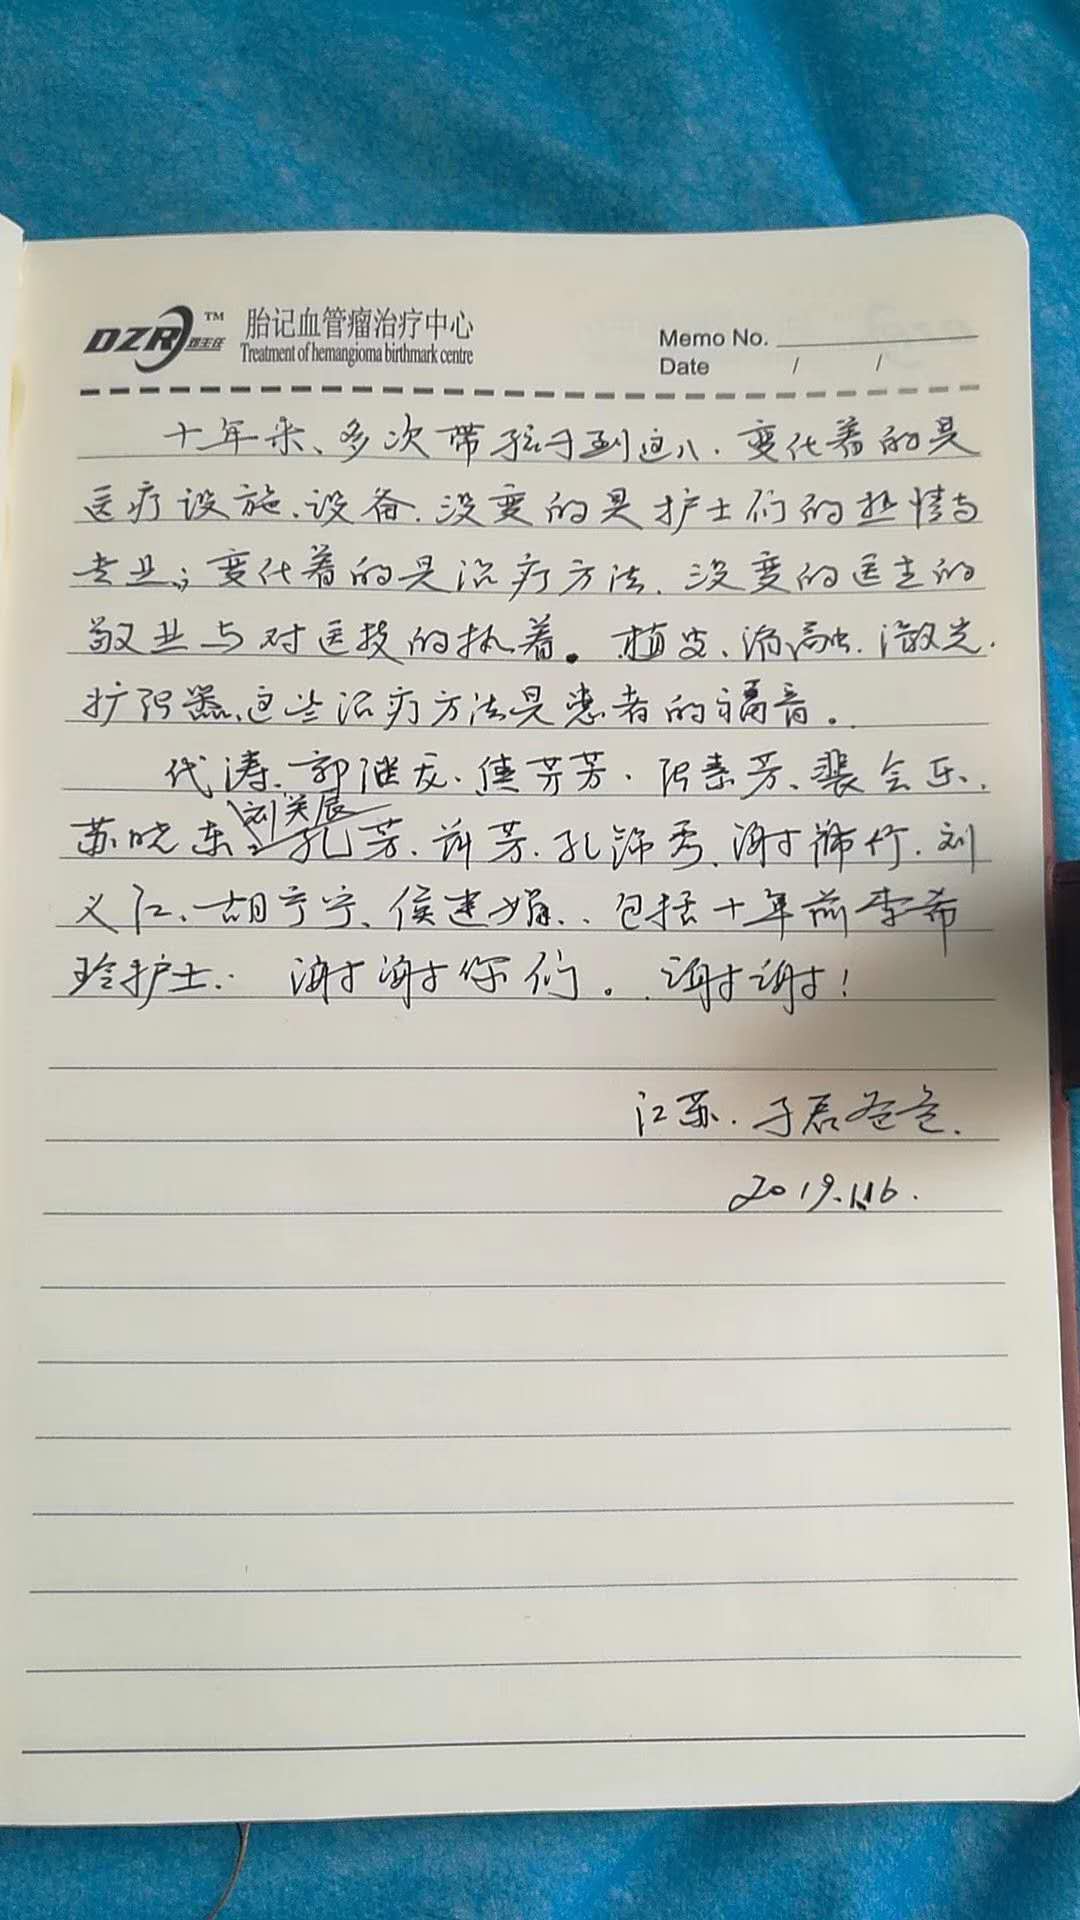 DZR TM 邓主任 胎记血管瘤治疗中心
Treatment of hemangioma birthmark centre
Memo No.
Date / /
十年来、多次带孩子到这儿.变化着的是
医疗设施、设备.没变的是护士们的热情与
专业;变化着的是治疗方法.没变的医生的
敬业与对医技的执着。植皮、消融.激光.
扩张器、这些治疗方法是患者的福音。
代涛、郭继友、焦芳芳、张素芳、裴会乐、
刘关辰
苏晓东、孔芳、孔锦秀、谢锦竹、刘
义仁、胡宁宁、侯建娟、包括十年前李希
玲护士.谢谢你们。谢谢!
江苏.子君爸爸.
2019.1.16.